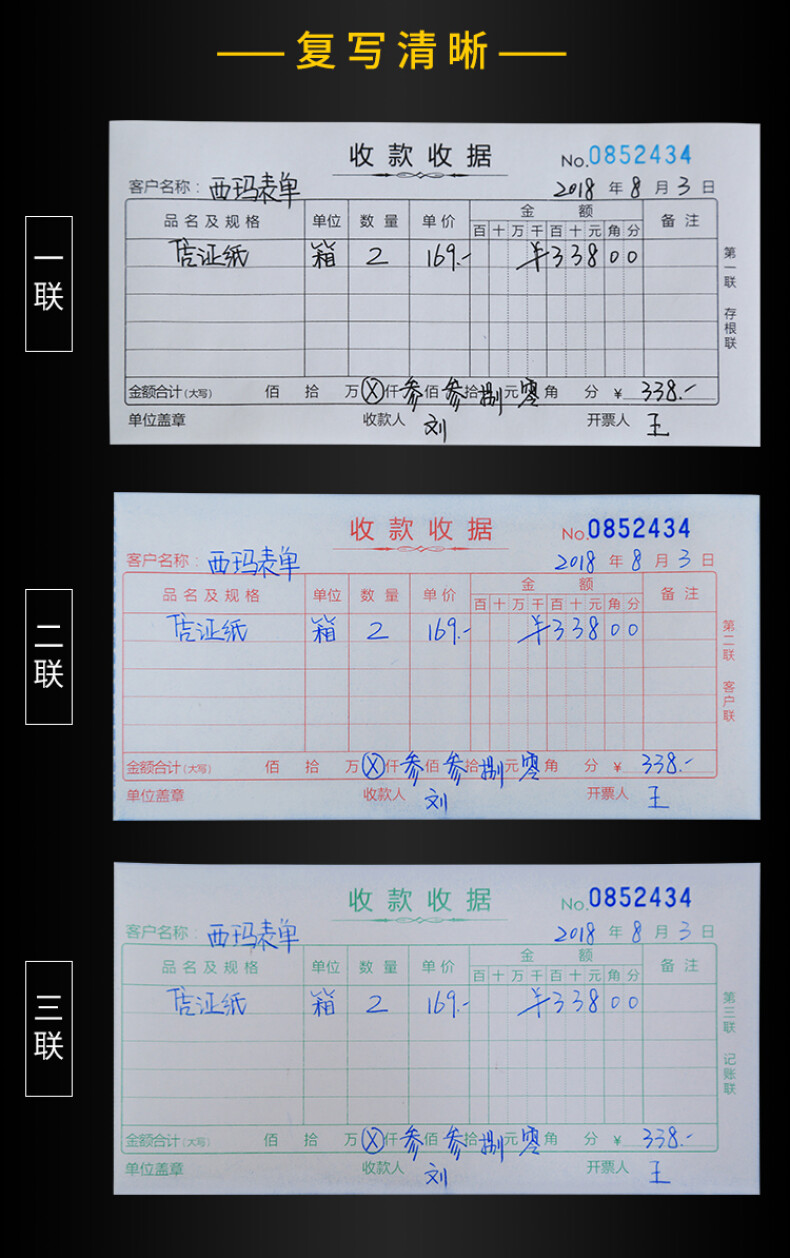 复写清晰
一联
收款收据 No.0852434
客户名称：西玛表单 2018年8月3日
品名及规格 单位 数量 单价 金额 备注
百十万千百十元角分
信证纸 箱 2 169.- ¥33800
第一联 存根联
金额合计(大写) 佰 拾 万ⓧ仟叁佰叁拾捌元零角 分 ¥338.-
单位盖章 收款人 刘 开票人 王
二联
收款收据 No.0852434
客户名称：西玛表单 2018年8月3日
品名及规格 单位 数量 单价 金额 备注
百十万千百十元角分
信证纸 箱 2 169.- ¥33800
第二联 客户联
金额合计(大写) 佰 拾 万ⓧ仟叁佰叁拾捌元零角 分 ¥338.-
单位盖章 收款人 刘 开票人 王
三联
收款收据 No.0852434
客户名称：西玛表单 2018年8月3日
品名及规格 单位 数量 单价 金额 备注
百十万千百十元角分
信证纸 箱 2 169.- ¥33800
第三联 记账联
金额合计(大写) 佰 拾 万ⓧ仟叁佰叁拾捌元零角 分 ¥338.-
单位盖章 收款人 刘 开票人 王